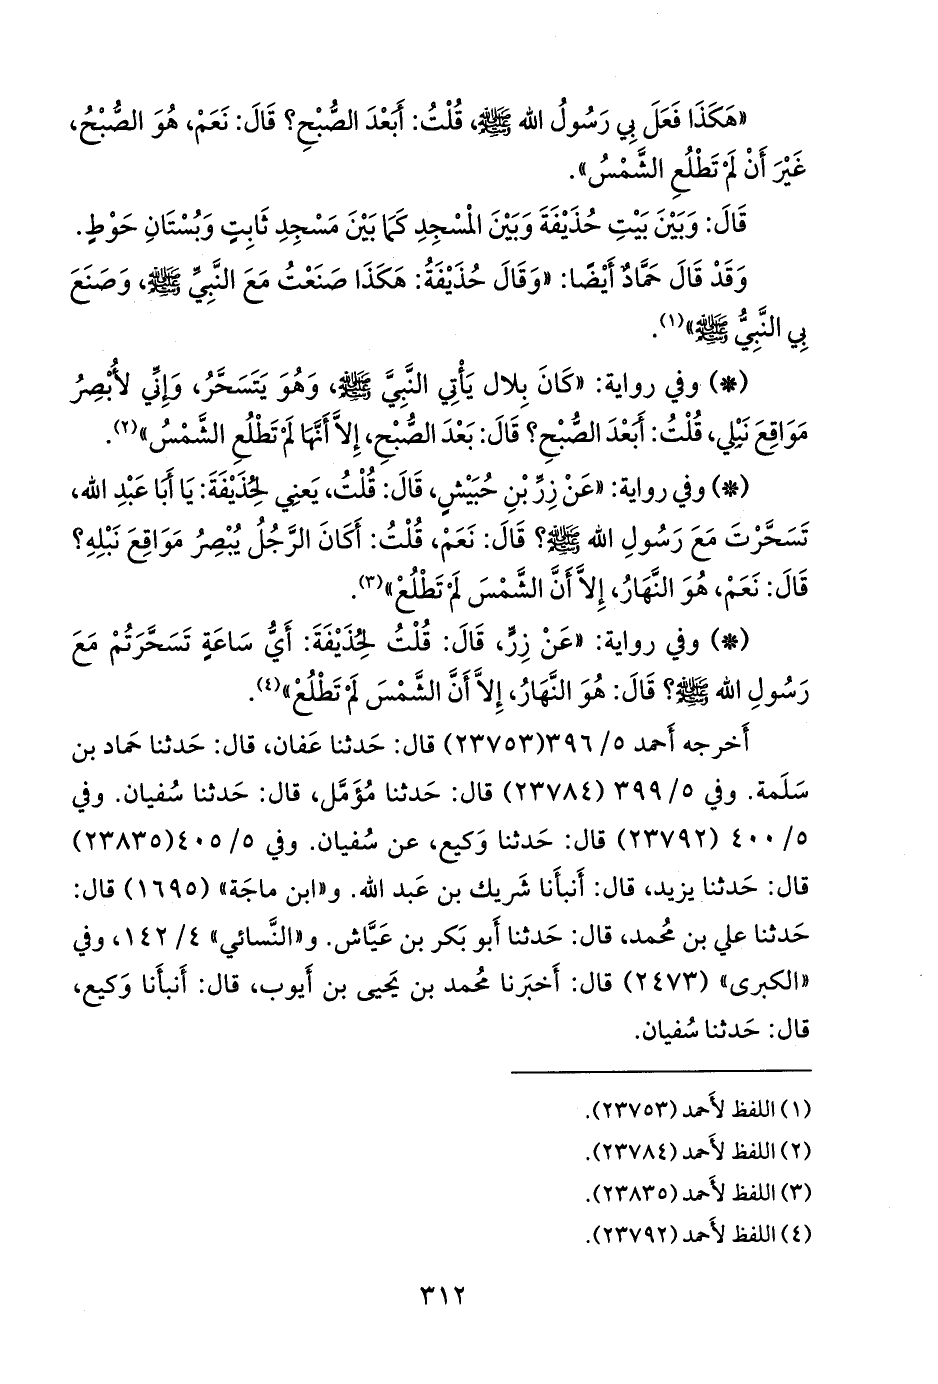 «هَكَذَا فَعَلَ بِي رَسُولُ الله ﷺ، قُلْتُ: أَبَعْدَ الصُّبْحِ؟ قَالَ: نَعَمْ، هُوَ الصُّبْحُ،
غَيْرَ أَنْ لَمْ تَطْلُعِ الشَّمْسُ».
قَالَ: وَبَيْنَ بَيْتِ حُذَيْفَةَ وَبَيْنَ الْمَسْجِدِ كَمَا بَيْنَ مَسْجِدِ ثَابِتٍ وَبُسْتَانِ حَوْطٍ.
وَقَدْ قَالَ حَمَّادٌ أَيْضًا: «وَقَالَ حُذَيْفَةُ: هَكَذَا صَنَعْتُ مَعَ النَّبِيِّ ﷺ، وَصَنَعَ
بِي النَّبِيُّ ﷺ»(١).
(*) وفي رواية: «كَانَ بِلال يَأْتِي النَّبِيَّ ﷺ، وَهُوَ يَتَسَحَّرُ، وَإِنِّي لأُبْصِرُ
مَوَاقِعَ نَبْلِي، قُلْتُ: أَبَعْدَ الصُّبْحِ؟ قَالَ: بَعْدَ الصُّبْحِ، إِلاَّ أَنَّهَا لَمْ تَطْلُعِ الشَّمْسُ»(٢).
(*) وفي رواية: «عَنْ زِرِّ بْنِ حُبَيْشٍ، قَالَ: قُلْتُ، يَعنِي لِحُذَيْفَةَ: يَا أَبَا عَبْدِ الله،
تَسَحَّرْتَ مَعَ رَسُولِ الله ﷺ؟ قَالَ: نَعَمْ، قُلْتُ: أَكَانَ الرَّجُلُ يُبْصِرُ مَوَاقِعَ نَبْلِهِ؟
قَالَ: نَعَمْ، هُوَ النَّهَارُ، إِلاَّ أَنَّ الشَّمْسَ لَمْ تَطْلُعْ»(٣).
(*) وفي رواية: «عَنْ زِرٍّ، قَالَ: قُلْتُ لِحُذَيْفَةَ: أَيُّ سَاعَةٍ تَسَحَّرْتُمْ مَعَ
رَسُولِ الله ﷺ؟ قَالَ: هُوَ النَّهَارُ، إِلاَّ أَنَّ الشَّمْسَ لَمْ تَطْلُعْ»(٤).
أَخرجه أَحمد ٥/ ٣٩٦(٢٣٧٥٣) قال: حَدثنا عَفان، قال: حَدثنا حماد بن
سَلَمة. وفي ٥/ ٣٩٩ (٢٣٧٨٤) قال: حَدثنا مُؤَمَّل، قال: حَدثنا سُفيان. وفي
٥/ ٤٠٠ (٢٣٧٩٢) قال: حَدثنا وَكيع، عن سُفيان. وفي ٥/ ٤٠٥(٢٣٨٣٥)
قال: حَدثنا يزيد، قال: أَنبأَنا شَريك بن عَبد الله. و«ابن ماجَة» (١٦٩٥) قال:
حَدثنا علي بن مُحمد، قال: حَدثنا أَبو بَكر بن عَيَّاش. و«النَّسائي» ٤/ ١٤٢، وفي
«الكبرى» (٢٤٧٣) قال: أَخبَرنا مُحمد بن يَحيى بن أَيوب، قال: أَنبأَنا وَكيع،
قال: حَدثنا سُفيان.
(١) اللفظ لأَحمد (٢٣٧٥٣).
(٢) اللفظ لأَحمد (٢٣٧٨٤).
(٣) اللفظ لأَحمد (٢٣٨٣٥).
(٤) اللفظ لأَحمد (٢٣٧٩٢).
٣١٢